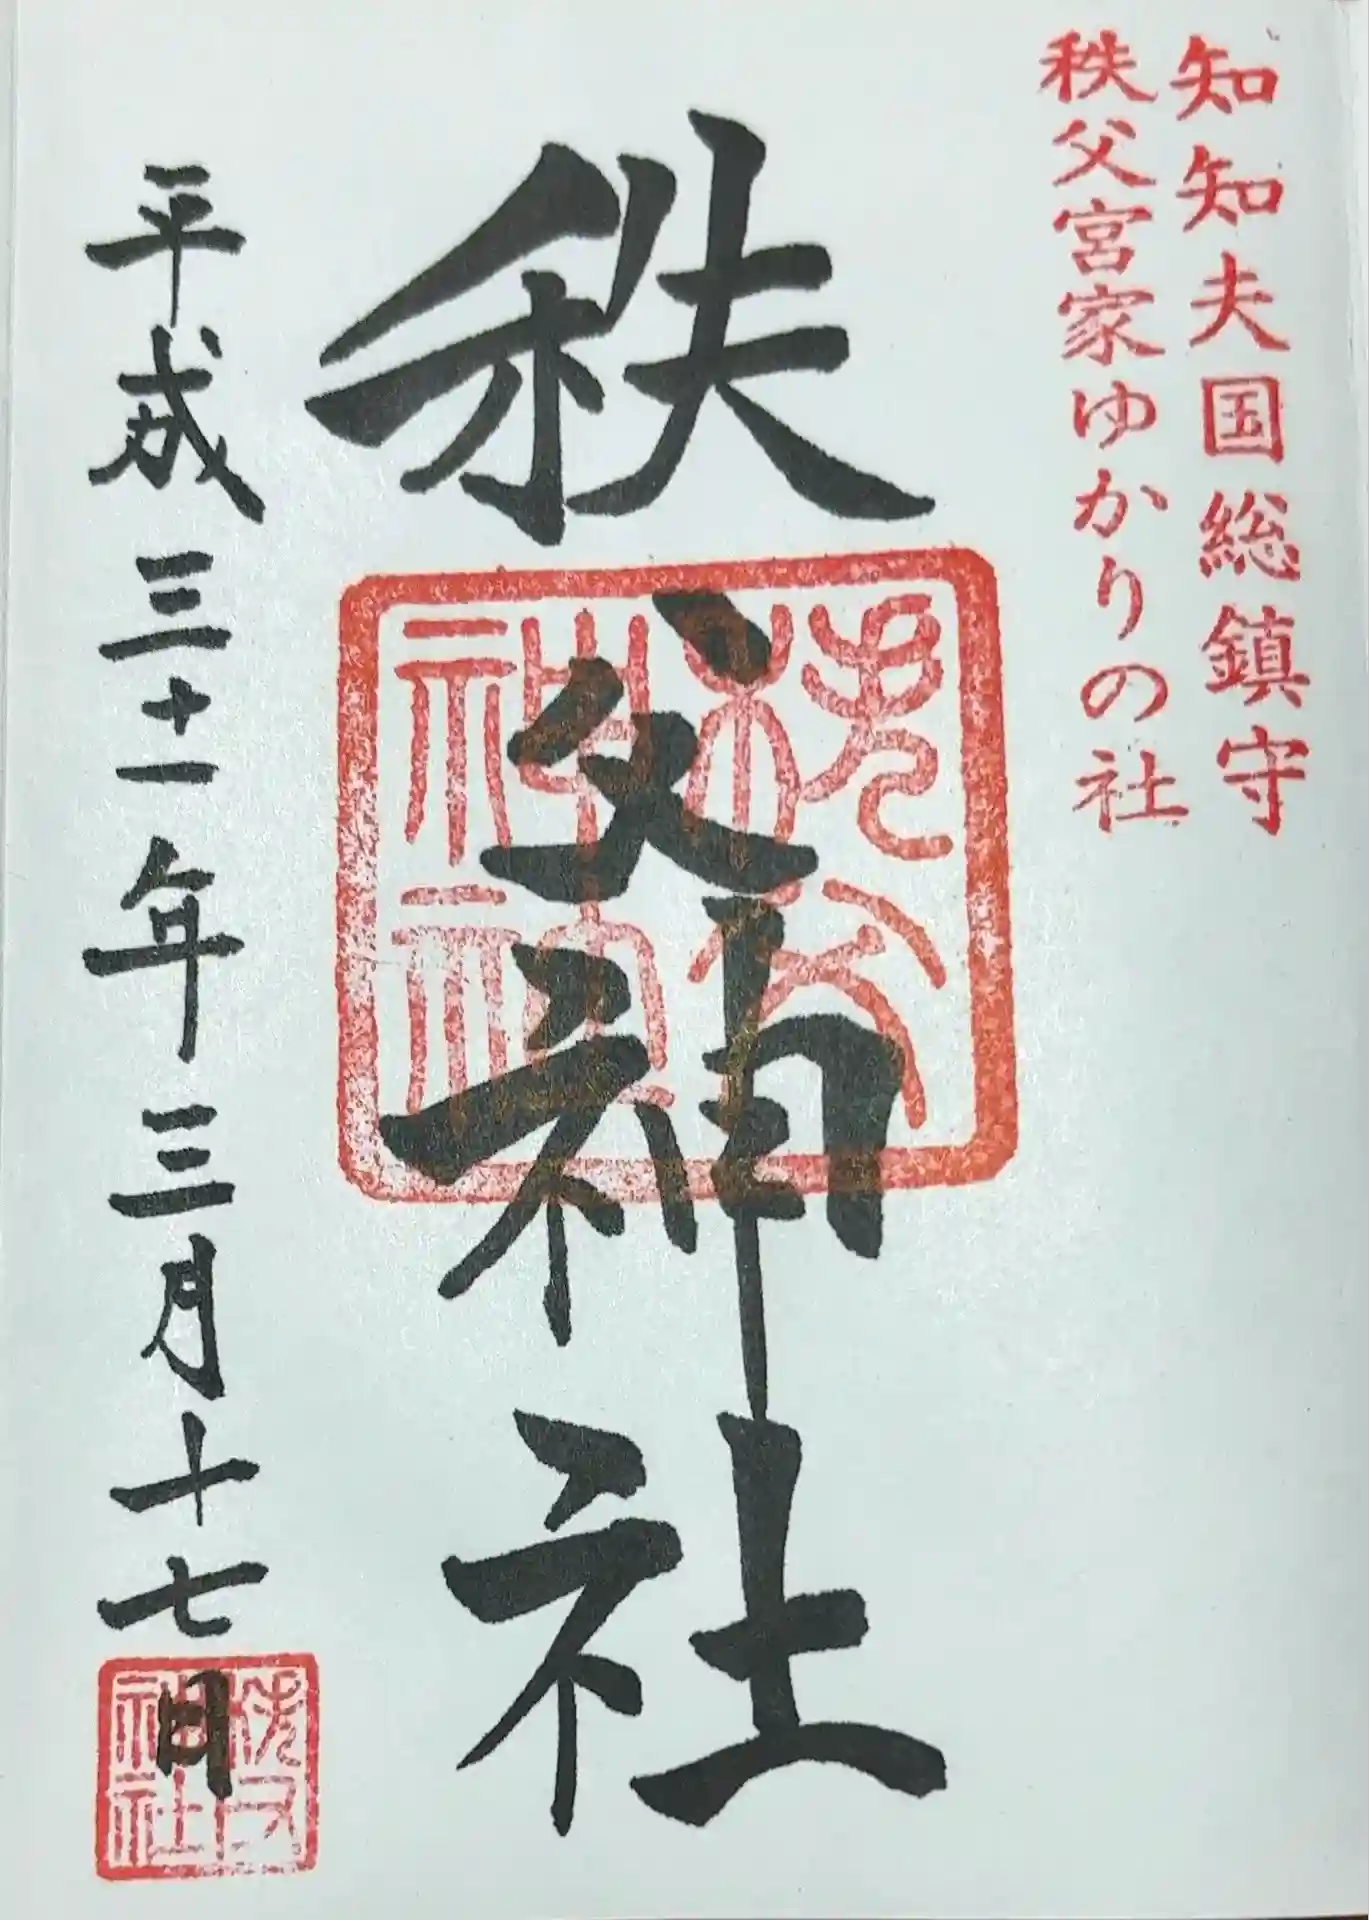 知知夫国総鎮守
秩父宮家ゆかりの社
秩父神社
秩父神社
平成三十一年三月十七日
秩父神社